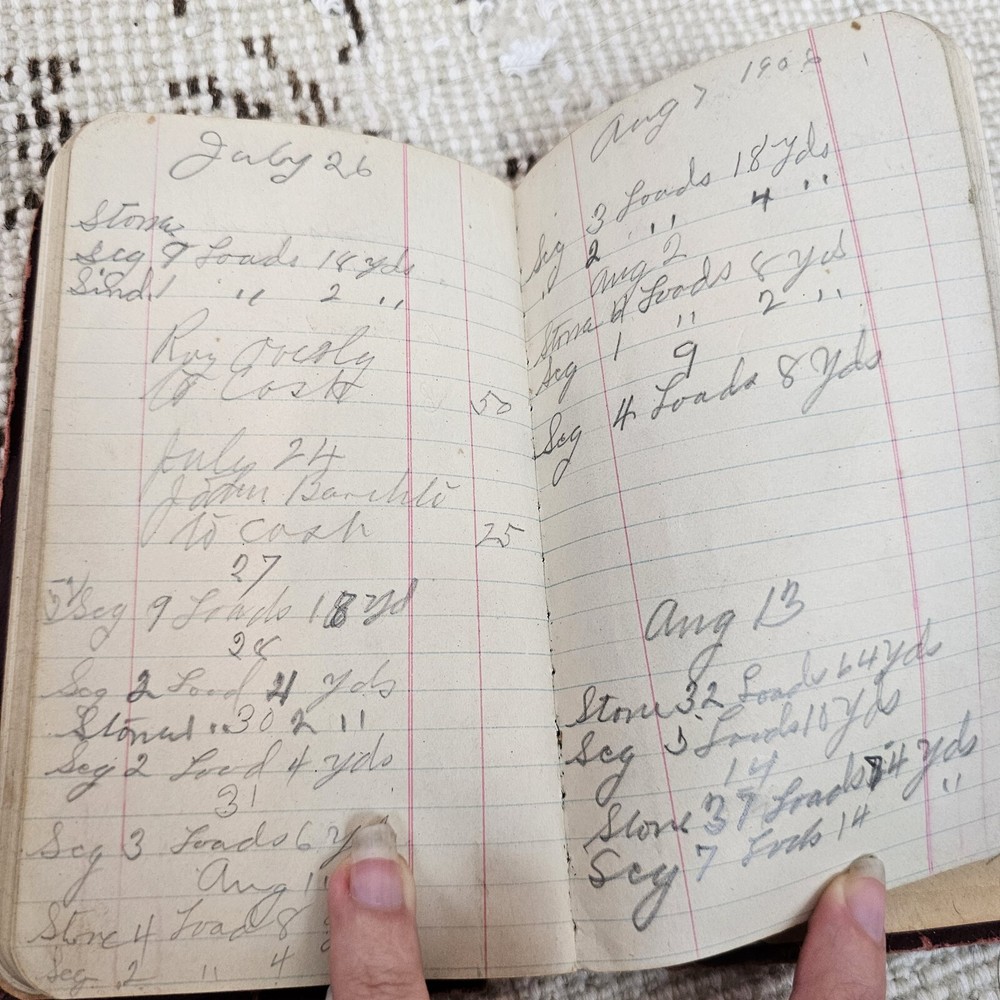 July 26
Stone
Scg 9 Loads 18 yds
Sind 1 " 2 "
Roy Overly
to Cash 50
July 24
John
to cash 25
27
Scg 9 Loads 18 yd
28
Scg 2 Load 4 yds
Stone 1 " 2 "
30
Scg 2 Load 4 yds
31
Scg 3 Loads 6 yds
Aug 1
Stone 4 Load 8
Scg 2 " 4
Aug 7 1908
Scg 3 Loads 18 yds
" 2 " " 4 "
Aug 2
Stone 4 Loads 8 yds
Scg 1 " 2 "
9
Scg 4 Loads 8 Yds
Aug 13
Stone 32 Loads 64 yds
Scg 5 Loads 10 yds
14
Stone 37 Loads 74 yds
Scg 7 Lods 14 "